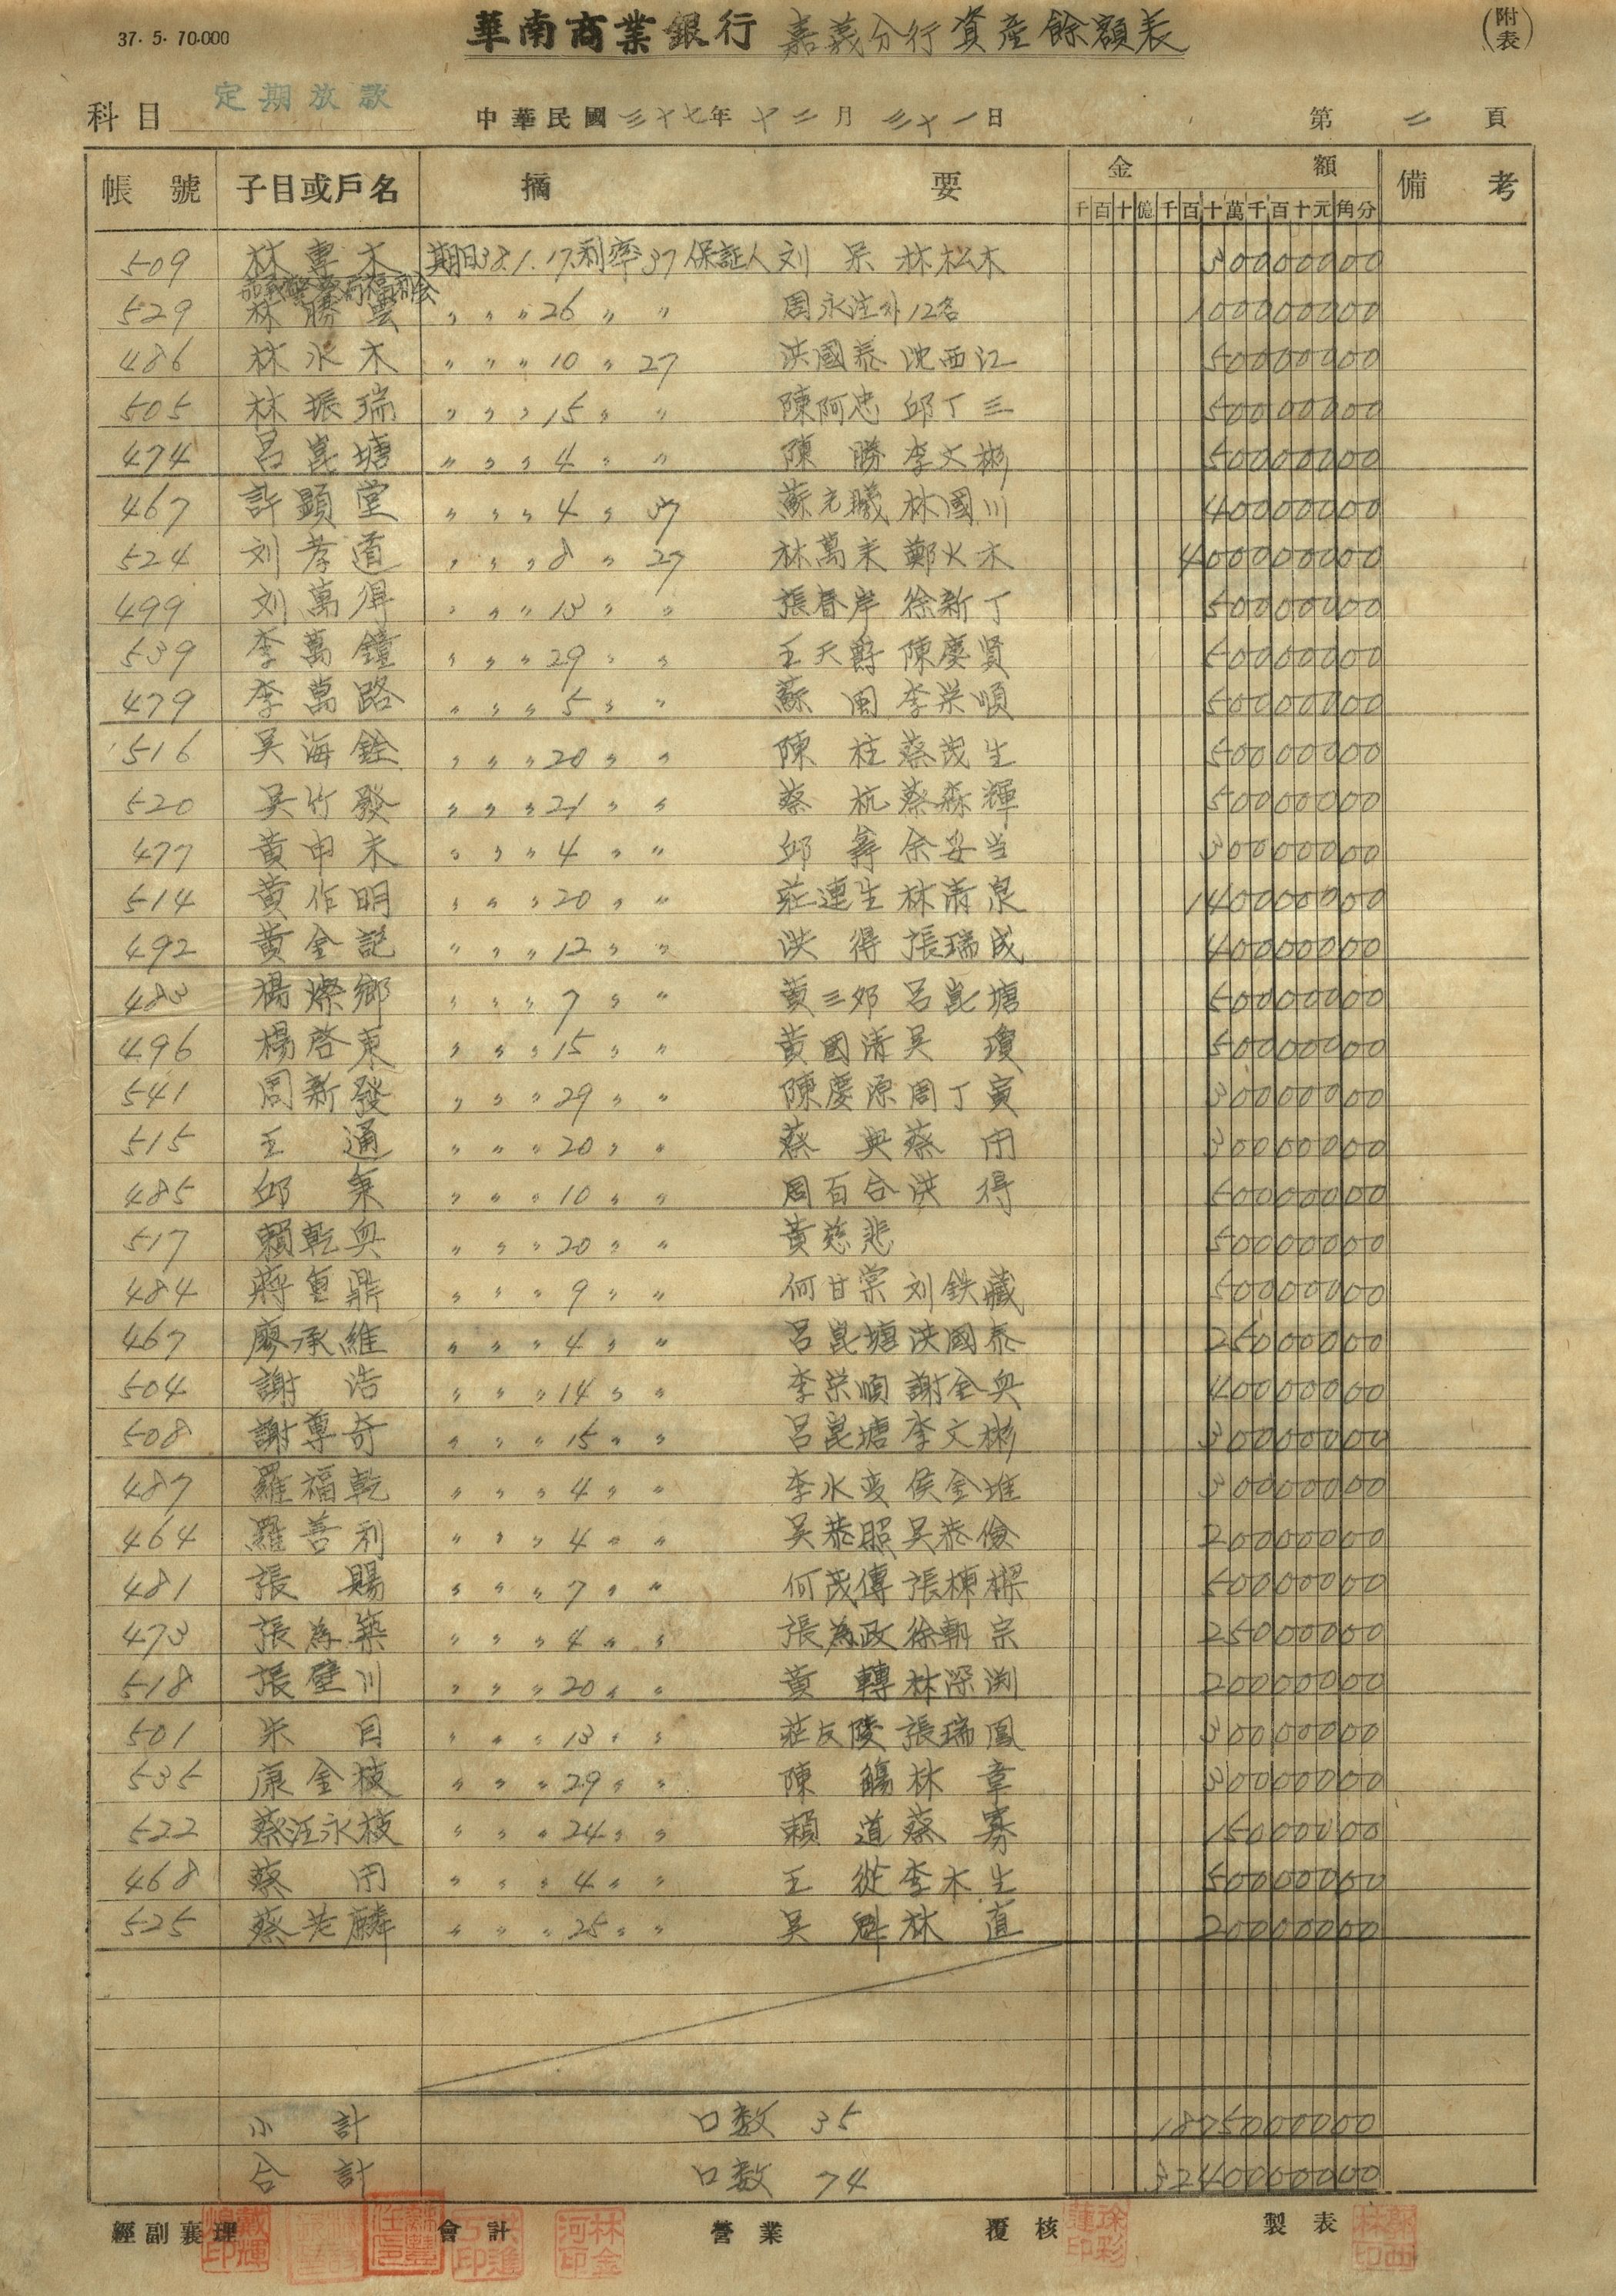 37. 5. 70.000
華南商業銀行 嘉義分行資產餘額表
(附表)
科目 定期放款
中華民國三十七年十二月三十一日
第二頁
帳號 子目或戶名 摘要 金額 備考
千百十億千百十萬千百十元角分
509 林專木 期日38.1.17.利率37 保証人 刘呆 林松木 30000000
529 林勝雲 〃 〃 〃 26 〃 〃 周永注外12名 100000000
486 林水木 〃 〃 〃 10 〃 27 洪國泰 沈西江 50000000
505 林振瑞 〃 〃 〃 15 〃 〃 陳阿忠 邱丁三 50000000
474 呂崑塘 〃 〃 〃 4 〃 〃 陳勝 李文彬 50000000
467 許顕堂 〃 〃 〃 4 〃 37 蘇光曦 林國川 40000000
524 刘孝道 〃 〃 〃 8 〃 27 林萬來 鄭火木 400000000
499 刘萬得 〃 〃 〃 13 〃 〃 張春岸 徐新丁 50000000
539 李萬鐘 〃 〃 〃 29 〃 〃 王天爵 陳慶賢 50000000
479 李萬路 〃 〃 〃 5 〃 〃 蘇闽 李栄順 50000000
516 吴海銓 〃 〃 〃 20 〃 〃 陳柱 蔡茂生 50000000
520 吴竹發 〃 〃 〃 21 〃 〃 蔡杭 蔡森輝 50000000
477 黃申未 〃 〃 〃 4 〃 〃 邱 余妥当 30000000
514 黃作明 〃 〃 〃 20 〃 〃 莊連生 林清泉 140000000
492 黃金記 〃 〃 〃 12 〃 〃 洪得 張瑞成 40000000
483 楊燦鄉 〃 〃 〃 7 〃 〃 黃三郊 呂崑塘 50000000
496 楊啓東 〃 〃 〃 15 〃 〃 黃國清 吴瓊 50000000
541 周新發 〃 〃 〃 29 〃 〃 陳慶源 周丁寅 30000000
515 王通 〃 〃 〃 20 〃 〃 蔡典 蔡用 30000000
485 邱秉 〃 〃 〃 10 〃 〃 周百合 洪得 50000000
517 賴乾興 〃 〃 〃 20 〃 〃 黃慈悲 50000000
484 蔣重鼎 〃 〃 〃 9 〃 〃 何甘棠 刘鉄藏 50000000
467 廖承維 〃 〃 〃 4 〃 〃 呂崑塘 洪國泰 25000000
504 謝浩 〃 〃 〃 14 〃 〃 李栄順 謝金興 40000000
508 謝尊奇 〃 〃 〃 15 〃 〃 呂崑塘 李文彬 30000000
487 羅福乾 〃 〃 〃 4 〃 〃 李水変 侯金堆 30000000
464 羅善利 〃 〃 〃 4 〃 〃 吴恭照 吴恭儉 20000000
481 張賜 〃 〃 〃 7 〃 〃 何茂傳 張棟樑 50000000
473 張為築 〃 〃 〃 4 〃 〃 張為政 徐朝宗 25000000
518 張壁川 〃 〃 〃 20 〃 〃 黃轉 林深渕 20000000
501 朱目 〃 〃 〃 13 〃 〃 莊反陵 張瑞鳳 30000000
535 康金枝 〃 〃 〃 29 〃 〃 陳觴 林章 30000000
522 蔡汪永枝 〃 〃 〃 24 〃 〃 賴道 蔡寡 15000000
468 蔡用 〃 〃 〃 4 〃 〃 王從 李木生 50000000
525 蔡老麟 〃 〃 〃 25 〃 〃 吴魁 林直 20000000
小計 口数 35 1875000000
合計 口数 74 3240000000
經副襄理 會計 營業 覆核 製表